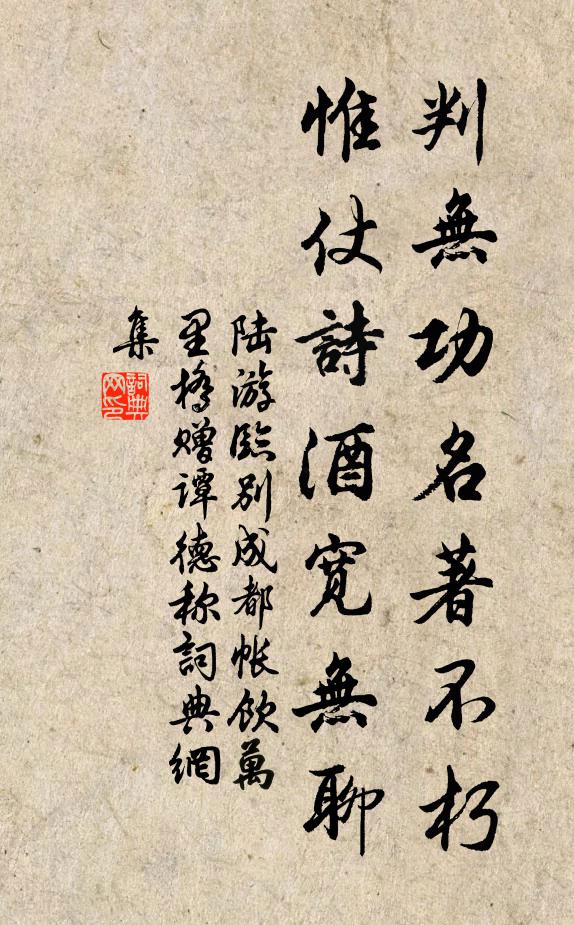 判無功名著不朽
惟仗詩酒寬無聊
陆游臨别成都帐飲萬
里橋赠谭德称詞典網
集
詞典
网印